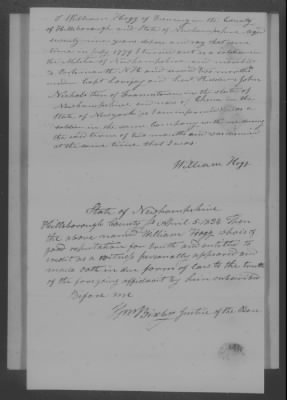 I William Hogg of Dunning in the County
of Hillsborough and State of Newhampshire aged
seventy nine years depose and say that some
time in July 1779 I turned out as a soldier in
the Militia of Newhampshire and marched
to Portsmouth N.H. and served two months
under Capt and Lieut John
Nichols then of in the state of
Newhampshire and now of China in the
State of Newyork was a
soldier in the same Company with me during
the said term of two months and was
at the same time that I was.
William Hogg
State of Newhampshire
Hillsborough County ss April 5. 1834 Then
the above named William Hogg who is of
good reputation for truth and entitled to
credit as a witness personally appeared and
made oath in due form of law to the truth
of the foregoing affidavit by him subscribed
Before me
Bixby Justice of the Peace